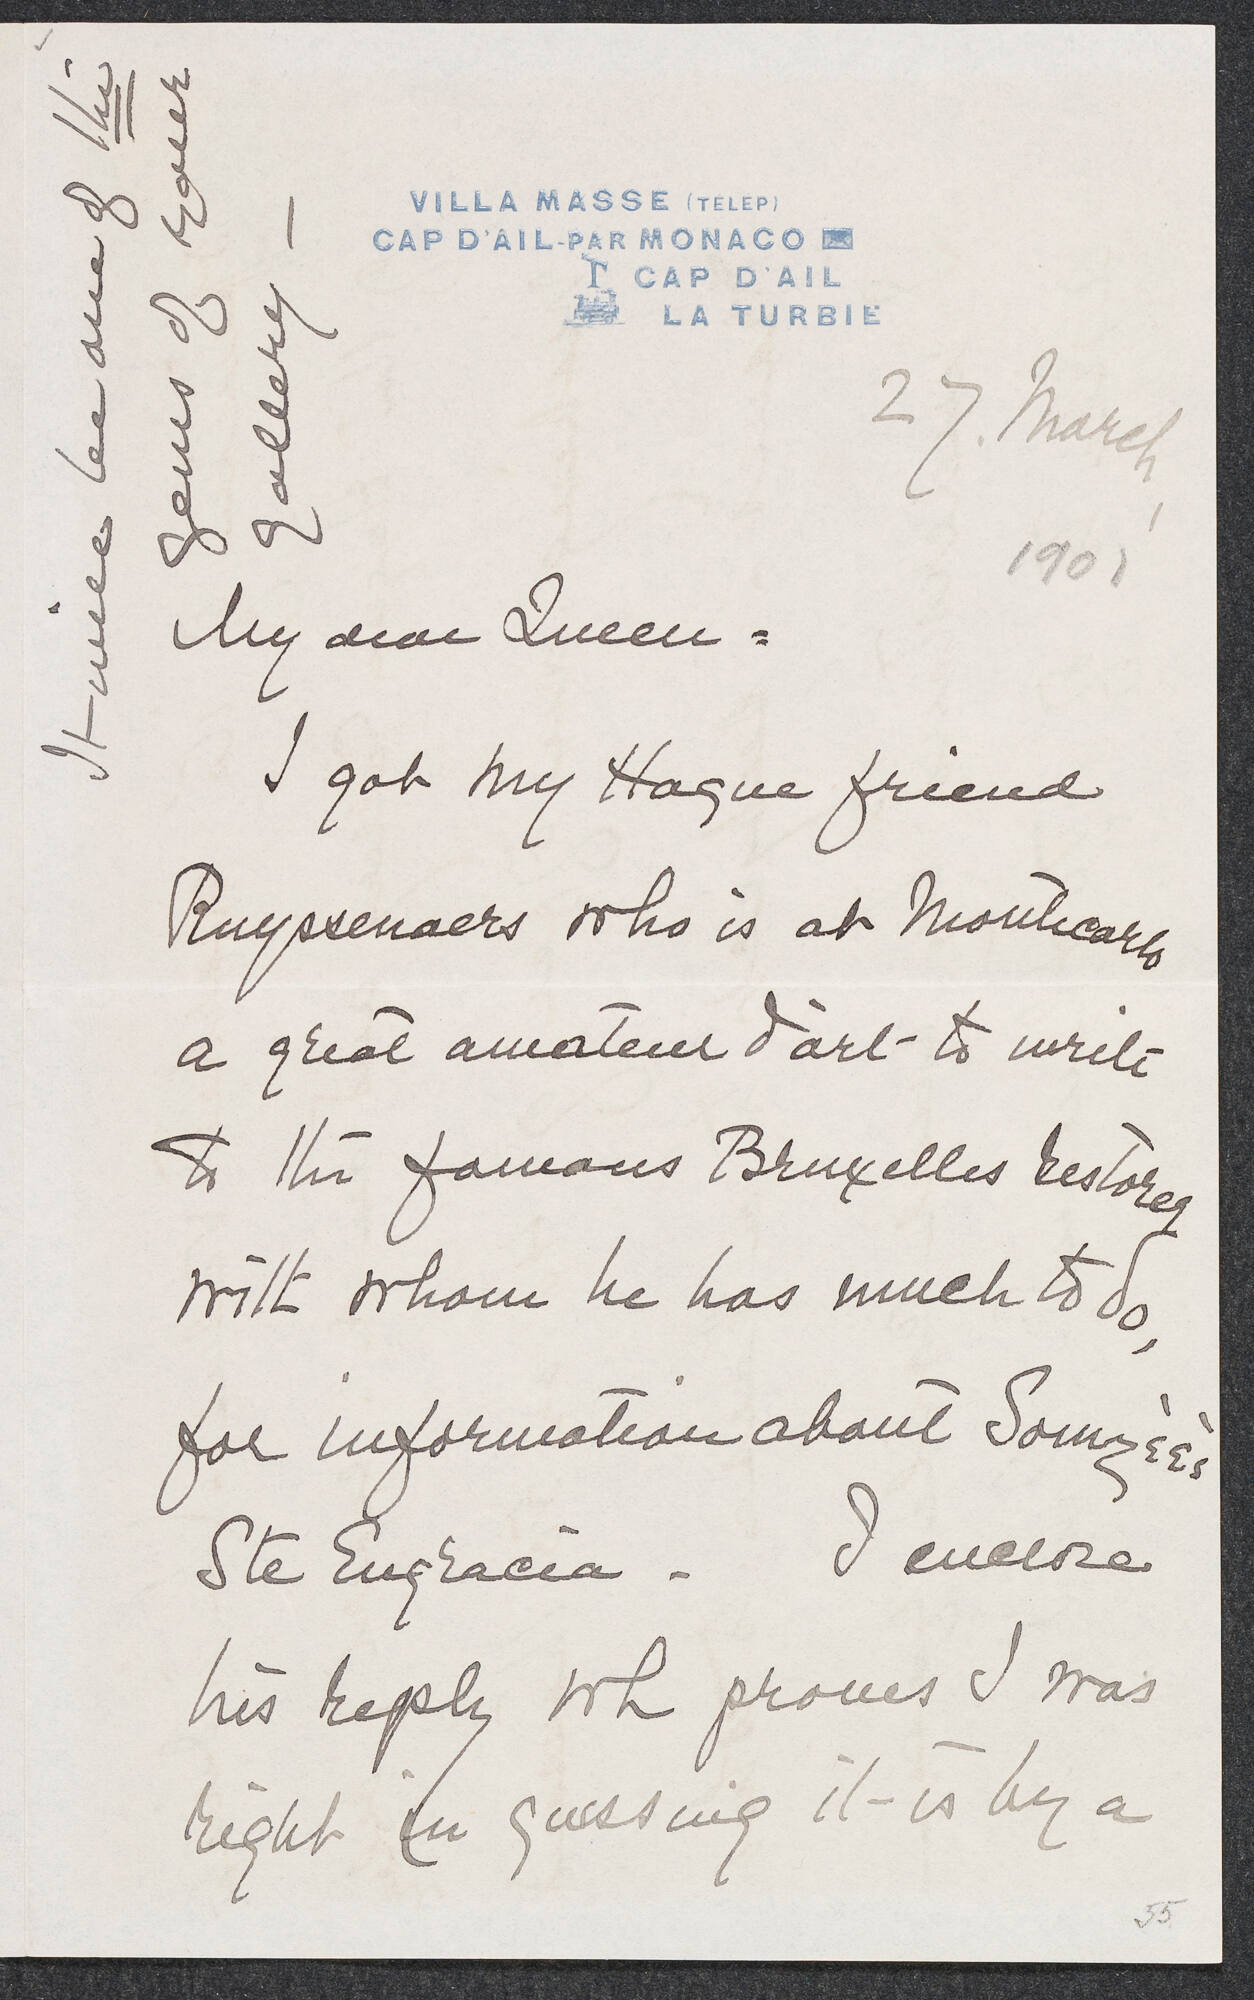 VILLA MASSE (TELEP)
CAP D'AIL-PAR MONACO
CAP D'AIL
LA TURBIE
27. March,
1901
My dear Queen =
I got my Hague friend
Ruyssenaers who is at Montecarlo
a great amateur d'art to write
to the famous Bruxelles restorer
with whom he has much to do,
for information about Somzèès
Ste Engracia - I enclose
his reply wh proves I was
right in guessing it is by a
It will be one of the
gems of your
gallery —
55